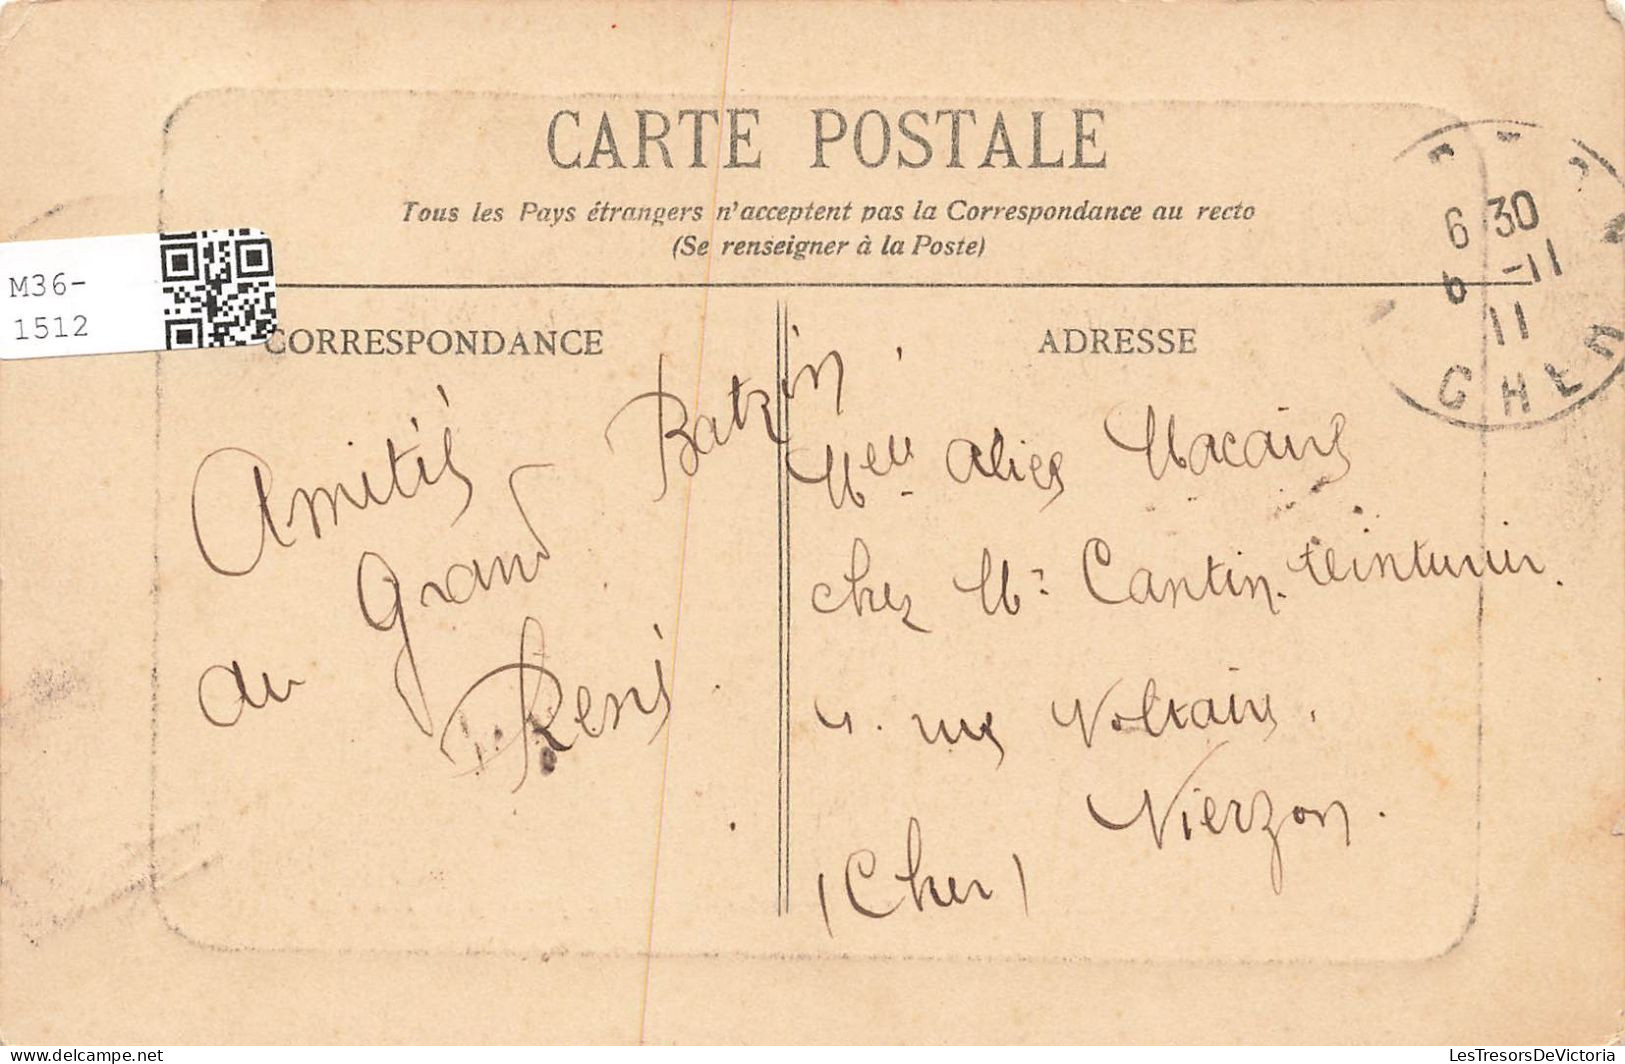 CARTE POSTALE
Tous les Pays étrangers n'acceptent pas la Correspondance au recto
(Se renseigner à la Poste)
M36-
1512
CORRESPONDANCE
Amitiés
du Grand Batzin
René
ADRESSE
Melle Alice Macaire
chez Mr Cantin. teinturier.
4. rue Voltaire.
Vierzon.
(Cher)
6 30
6 -11
11
CHER
LesTresorsDeVictoria